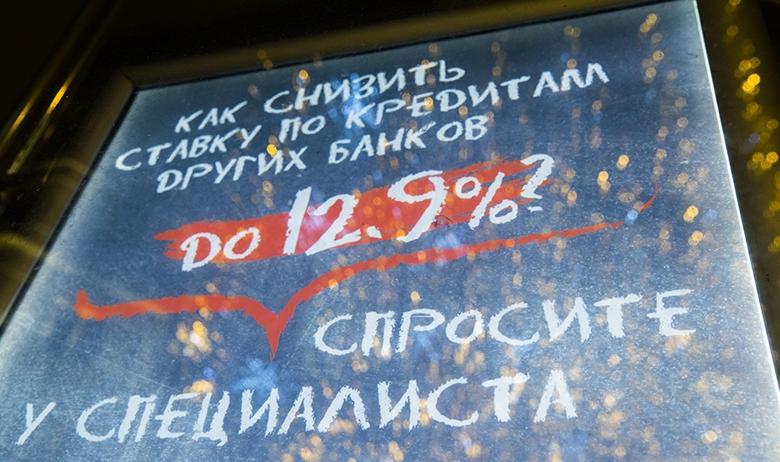 КАК СНИЗИТЬ
СТАВКУ ПО КРЕДИТАМ
ДРУГИХ БАНКОВ
ДО 12.9%?
СПРОСИТЕ
У СПЕЦИАЛИСТА